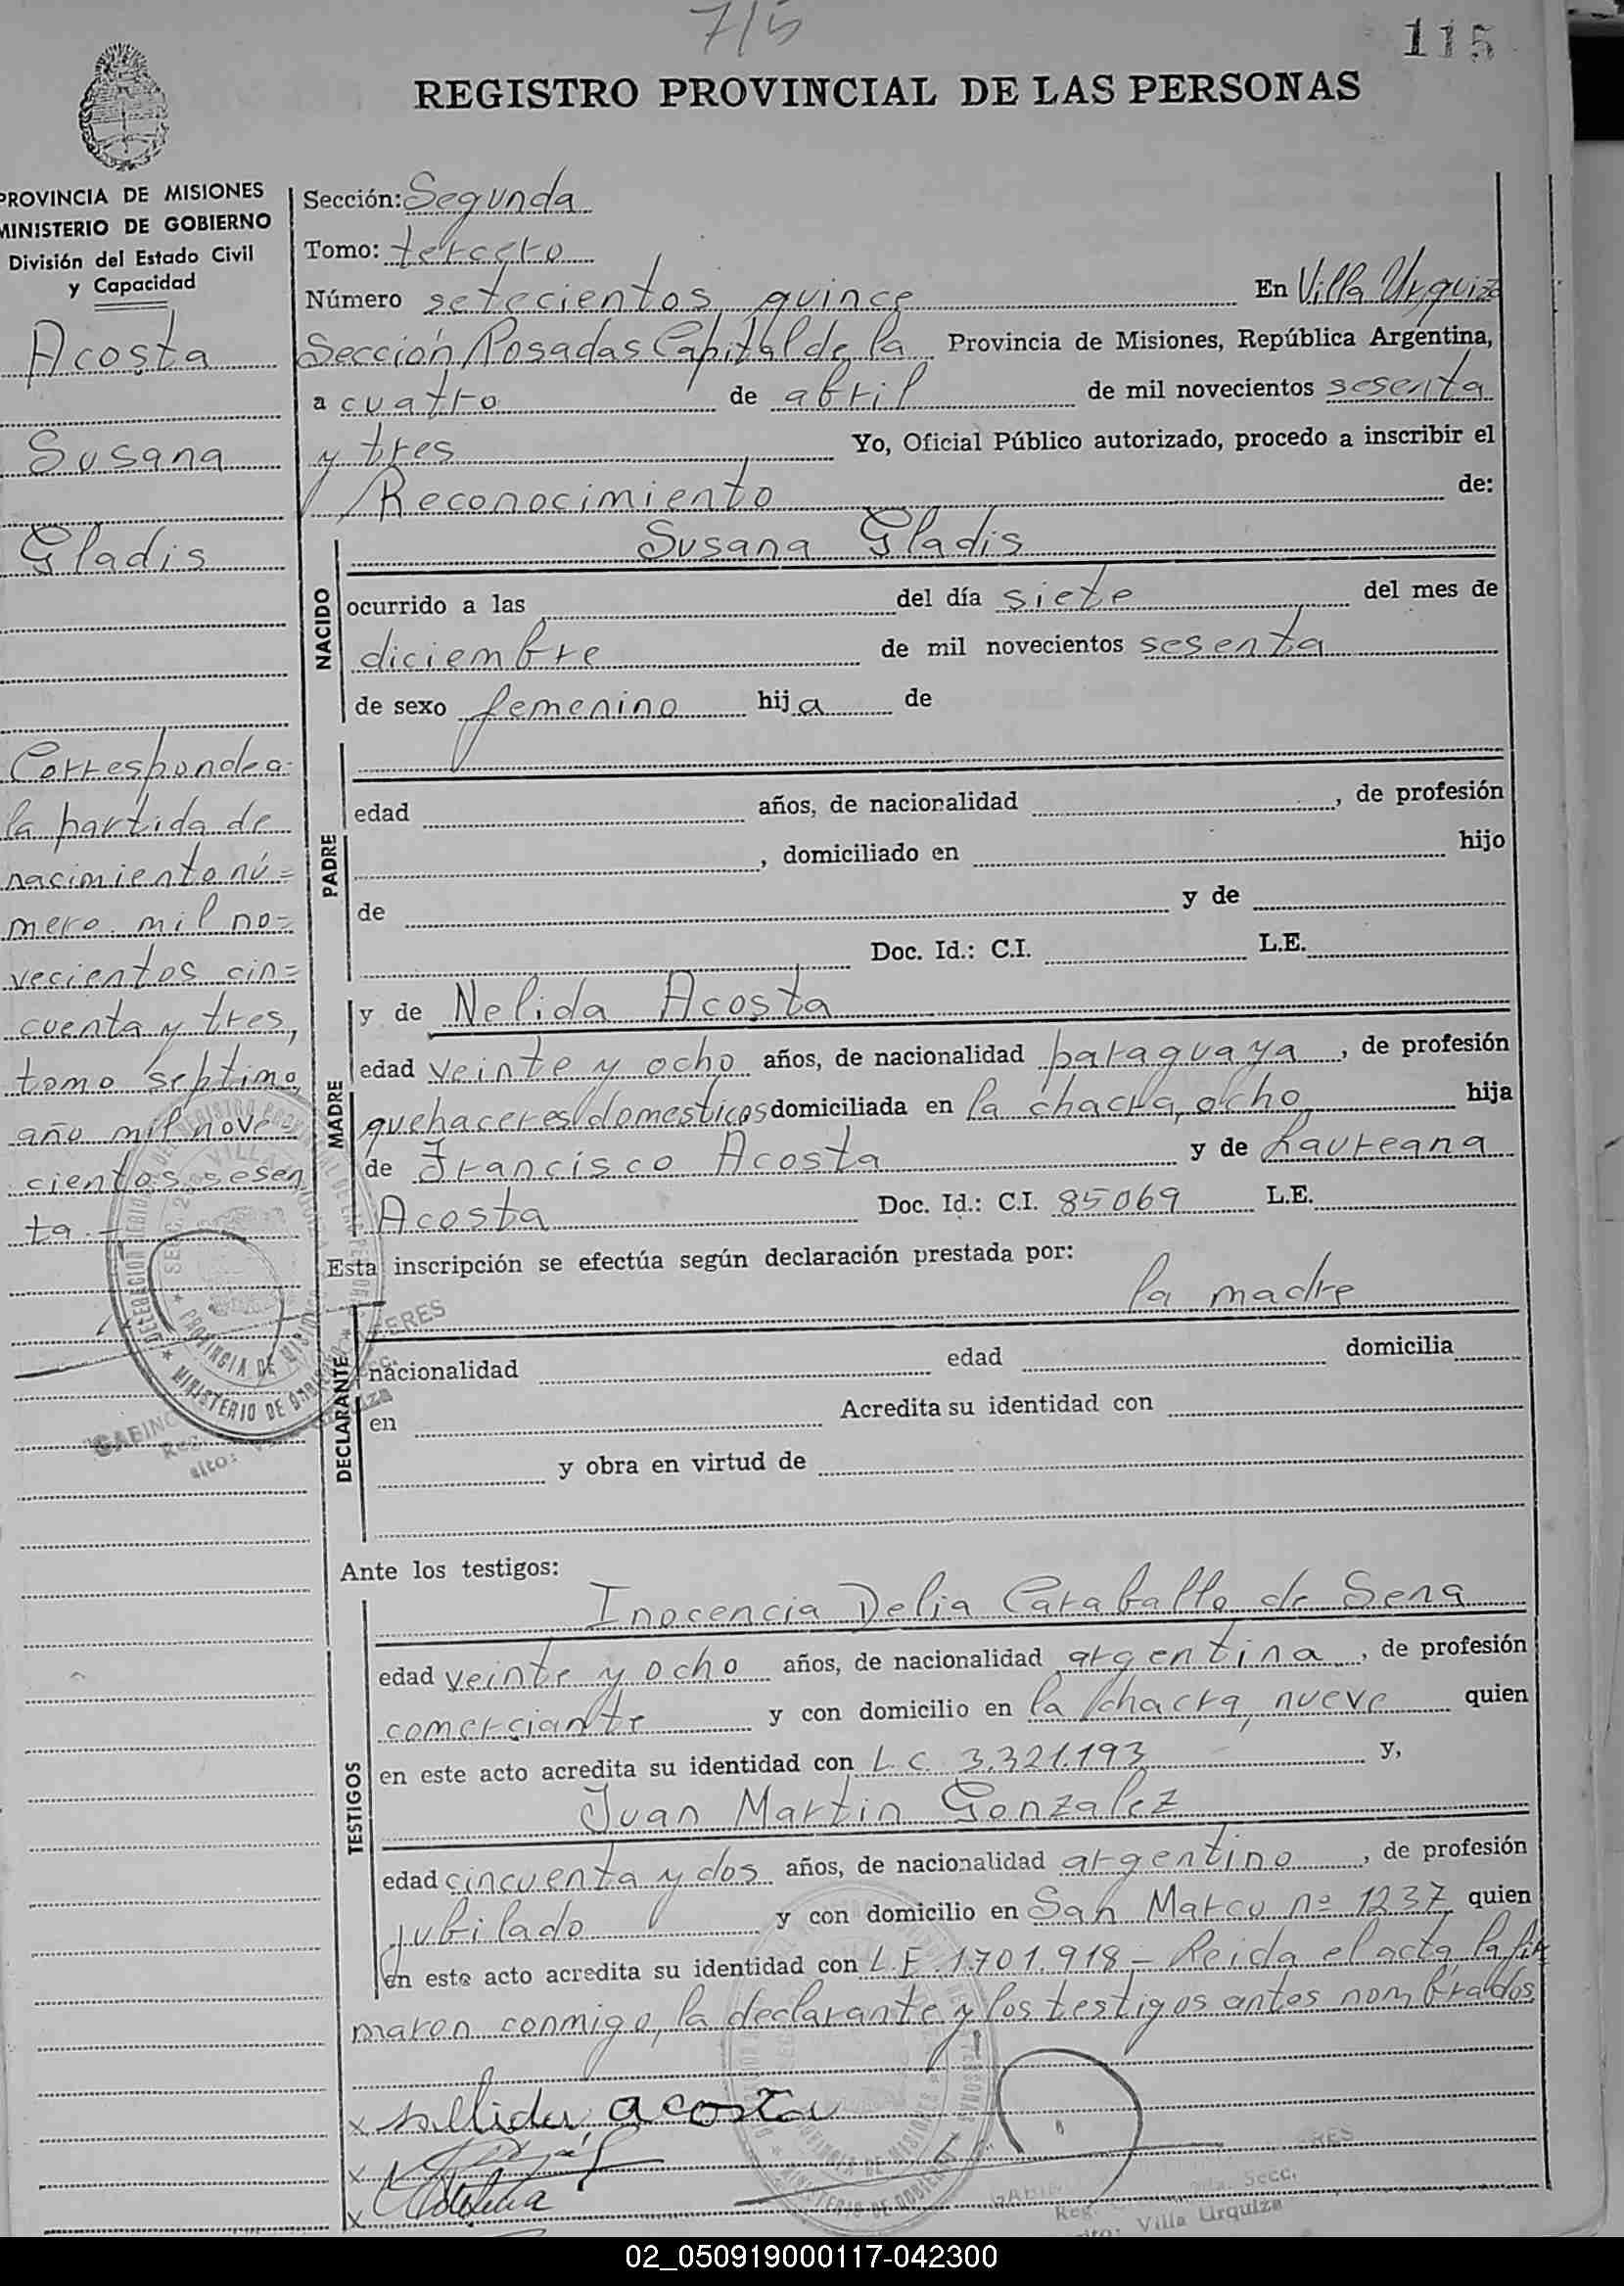 7/5
115
REGISTRO PROVINCIAL DE LAS PERSONAS
PROVINCIA DE MISIONES
MINISTERIO DE GOBIERNO
División del Estado Civil
y Capacidad
Acosta
Susana
Gladis
Corresponde a
la partida de
nacimiento nú=
mero mil no=
vecientos cin=
cuenta y tres,
tomo septimo
año mil nove
cientos sesen
ta.-
Sección: Segunda
Tomo: tercero
Número setecientos quince En Villa Urquiza
Sección Posadas Capital de la Provincia de Misiones, República Argentina,
a cuatro de abril de mil novecientos sesenta
y tres Yo, Oficial Público autorizado, procedo a inscribir el
Reconocimiento de:
NACIDO
Susana Gladis
ocurrido a las del día siete del mes de
diciembre de mil novecientos sesenta
de sexo femenino hija de
PADRE
edad años, de nacionalidad , de profesión
, domiciliado en hijo
de y de
Doc. Id.: C.I. L.E.
MADRE
y de Nelida Acosta
edad veinte y ocho años, de nacionalidad paraguaya, de profesión
quehaceres domesticos domiciliada en la chacra, ocho, hija
de Francisco Acosta y de Laureana
Acosta Doc. Id.: C.I. 85069 L.E.
Esta inscripción se efectúa según declaración prestada por:
la madre
DECLARANTE
nacionalidad edad domicilia
en Acredita su identidad con
y obra en virtud de
Ante los testigos:
TESTIGOS
Inocencia Delia Caraballo de Sena
edad veinte y ocho años, de nacionalidad argentina, de profesión
comerciante y con domicilio en la chacra, nueve quien
en este acto acredita su identidad con L.C. 3.321.193 y,
Juan Martin Gonzalez
edad cincuenta y dos años, de nacionalidad argentino, de profesión
jubilado y con domicilio en San Marcu nº 1237 quien
en este acto acredita su identidad con L.E. 1.701.918 - Leida el acta, la fir
maron conmigo, la declarante y los testigos antes nombrados
x nellida acosta
x
x
Secc.
Villa Urquiza
02_050919000117-042300